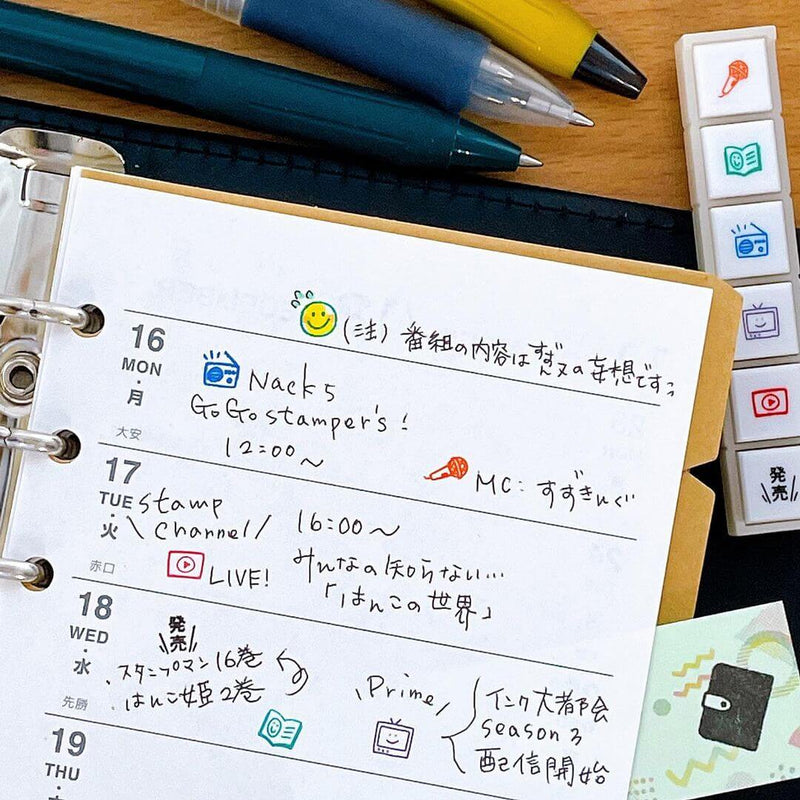 (注) 番組の内容はすずヌの妄想ですっ
16
MON
・
月
大安
Nack5
GoGo stamper's!
12:00～
MC: すずきいぐ
17
TUE
・
火
赤口
\ stamp
channel /
LIVE!
16:00～
みんなの知らない…
「はんこの世界」
18
WED
・
水
先勝
\発売/
・スタンプマン16巻
・はんこ姫2巻
\Prime/
インク大都会
season 3
配信開始
19
THU
\発売/